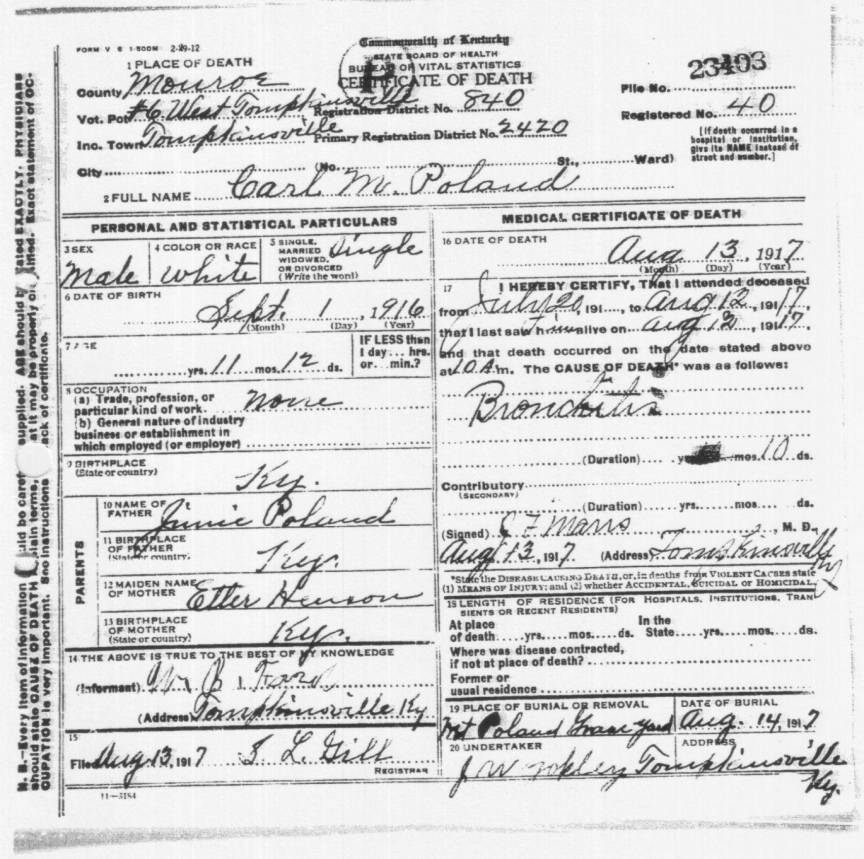 FORM V S 1-500M 2-29-12
Commonwealth of Kentucky
STATE BOARD OF HEALTH
BUREAU OF VITAL STATISTICS
CERTIFICATE OF DEATH
1 PLACE OF DEATH
County Monroe
Vot. Pct #6 West Tompkinsville
Inc. Town Tompkinsville
City (No. St., Ward)
Registration District No. 840
Primary Registration District No. 2420
File No. 23403
Registered No. 40
[If death occurred in a
hospital or institution,
give its NAME instead of
street and number.]
2 FULL NAME Carl M. Poland
PERSONAL AND STATISTICAL PARTICULARS
3 SEX
Male
4 COLOR OR RACE
White
5 SINGLE, Single
MARRIED
WIDOWED,
OR DIVORCED
(Write the word)
6 DATE OF BIRTH
Sept. 1, 1916
(Month) (Day) (Year)
7 AGE
yrs. 11 mos. 12 ds.
IF LESS than
1 day... hrs.
or... min.?
8 OCCUPATION
(a) Trade, profession, or
particular kind of work. none
(b) General nature of industry
business or establishment in
which employed (or employer)
9 BIRTHPLACE
(State or country)
Ky.
PARENTS
10 NAME OF
FATHER Poland
11 BIRTHPLACE
OF FATHER
(State or country)
Ky.
12 MAIDEN NAME
OF MOTHER Etter Henson
13 BIRTHPLACE
OF MOTHER
(State or country)
Ky.
14 THE ABOVE IS TRUE TO THE BEST OF MY KNOWLEDGE
(Informant)
(Address) Tompkinsville Ky
15
Filed Aug 13, 1917 L. Gill
REGISTRAR
11-3184
MEDICAL CERTIFICATE OF DEATH
16 DATE OF DEATH
Aug 13, 1917
(Month) (Day) (Year)
17 I HEREBY CERTIFY, That I attended deceased
from July 20, 191..., to Aug 12, 1917.
that I last saw him alive on Aug 12, 1917.
and that death occurred on the date stated above
at 10 A.m. The CAUSE OF DEATH* was as follows:
Bronchitis
(Duration) yrs. mos. 10 ds.
Contributory
(SECONDARY)
(Duration) yrs. mos ds.
(Signed) , M. D.
Aug 13, 1917. (Address) Tompkinsville Ky
*State the DISEASE CAUSING DEATH, or, in deaths from VIOLENT CAUSES state
(1) MEANS OF INJURY; and (2) whether ACCIDENTAL, SUICIDAL OR HOMICIDAL.
18 LENGTH OF RESIDENCE (FOR HOSPITALS, INSTITUTIONS, TRAN-
SIENTS OR RECENT RESIDENTS)
At place In the
of death....yrs....mos....ds. State....yrs....mos....ds.
Where was disease contracted,
if not at place of death?
Former or
usual residence
19 PLACE OF BURIAL OR REMOVAL
Mt Poland Grave yard
DATE OF BURIAL
Aug. 14, 1917
20 UNDERTAKER
J W
ADDRESS
Tompkinsville
Ky.